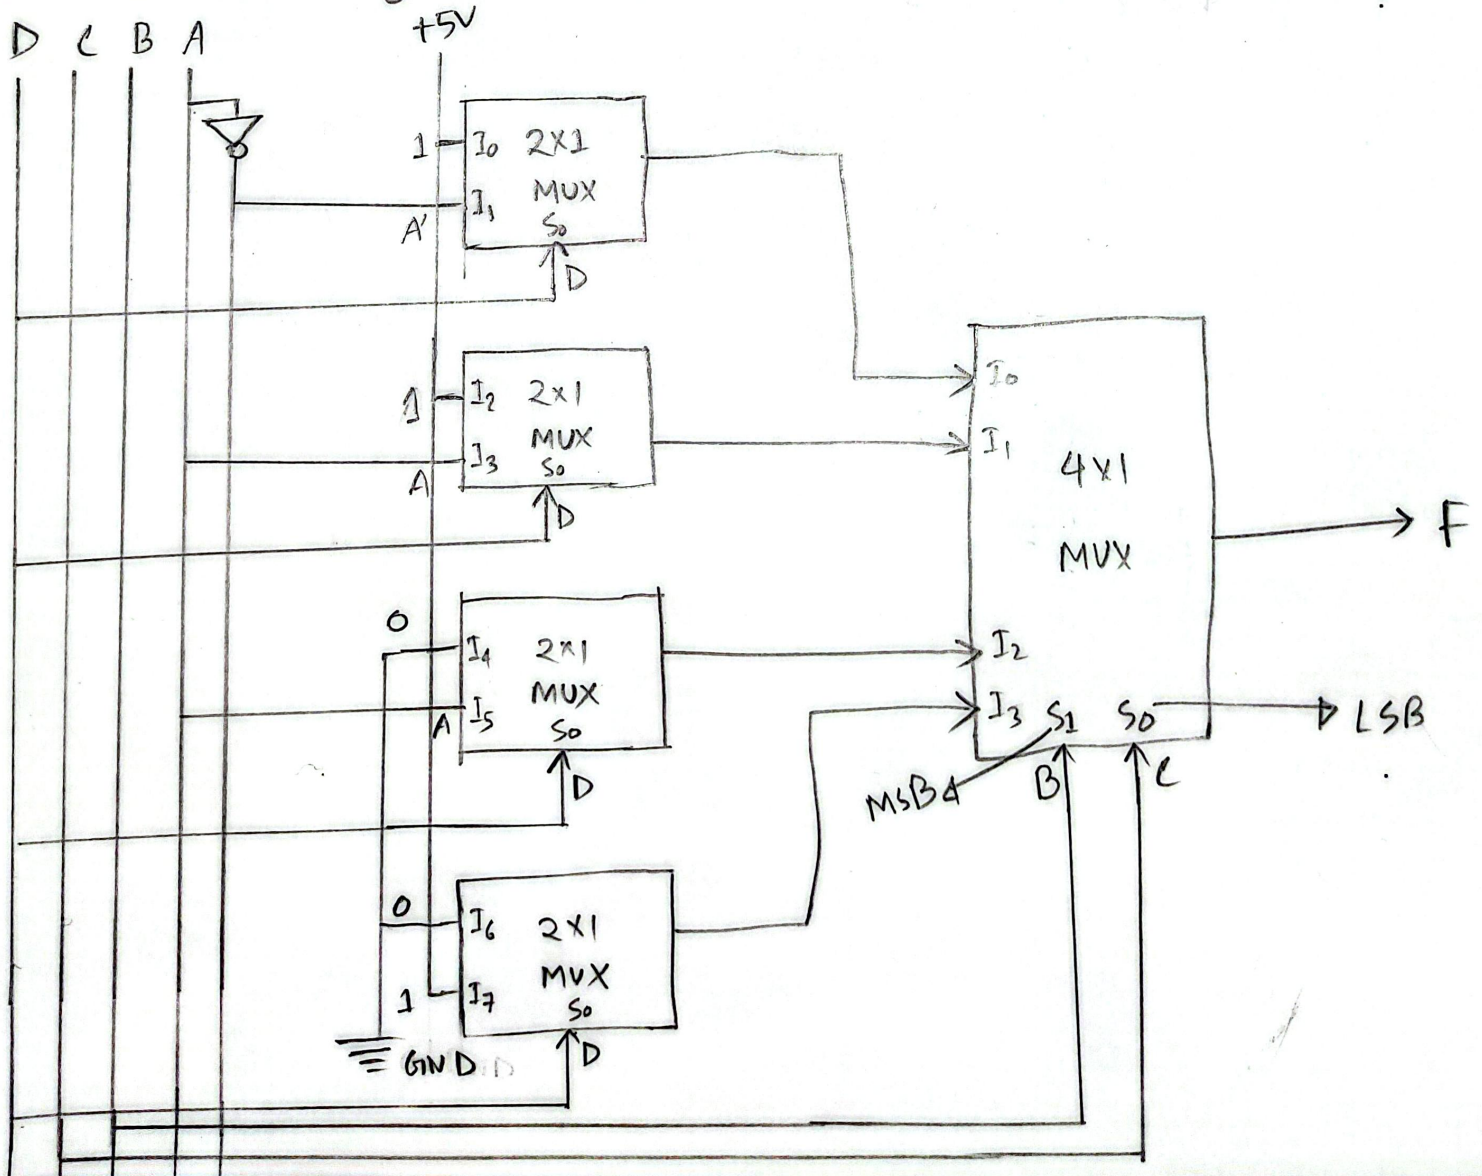 D C B A +5V
1 I0 2x1
MUX
A' I1
S0
D
1 I2 2x1
MUX
A I3 S0
D
0
I4 2x1
MUX
A I5 S0
D
0
I6 2x1
MUX
1 I7 S0
D
GND
I0
I1
4x1
MUX
I2
I3 S1 S0 LSB
MSB B C
F